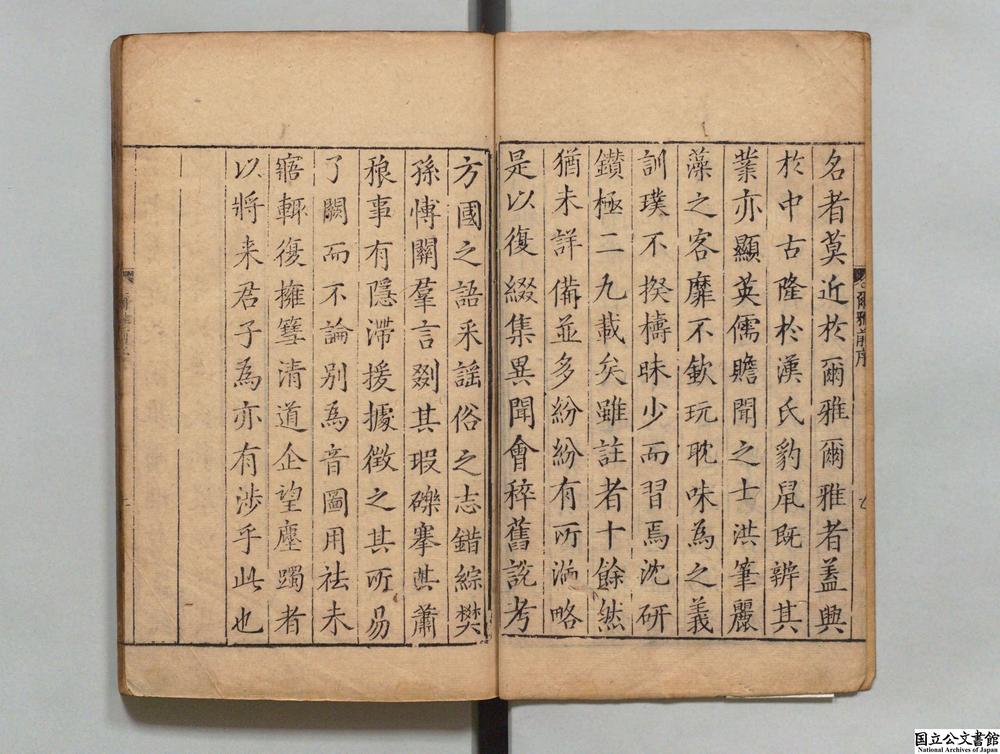 名者莫近於爾雅爾雅者蓋興
於中古隆於漢氏豹鼠既辨其
業亦顯英儒贍聞之士洪筆麗
藻之客靡不欽玩耽味為之義
訓璞不揆檮昧少而習焉沈研
鑚極二九載矣雖註者十餘然
猶未詳備並多紛紛有所漏略
是以復綴集異聞會稡舊說考
方國之語采謠俗之志錯綜樊
孫愽關羣言剟其瑕礫搴其蕭
稂事有隱滯援據徵之其所易
了闕而不論別為音圖用祛未
寤輒復擁篲清道企望塵躅者
以將来君子為亦有涉乎此也
爾雅前序
国立公文書館
National Archives of Japan